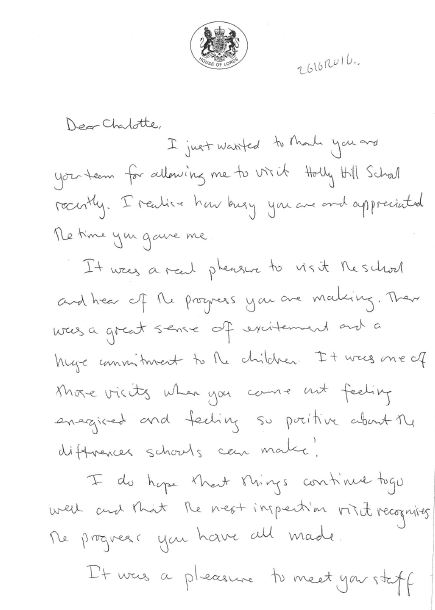 HOUSE OF LORDS
26/6/2016.
Dear Charlotte,
I just wanted to thank you and
your team for allowing me to visit Holly Hill School
recently. I realise how busy you are and appreciated
the time you gave me.
It was a real pleasure to visit the school
and hear of the progress you are making. There
was a great sense of excitement and a
huge commitment to the children. It was one of
those visits when you come out feeling
energised and feeling so positive about the
differences schools can make!
I do hope that things continue to go
well and that the next inspection visit recognises
the progress you have all made.
It was a pleasure to meet your staff